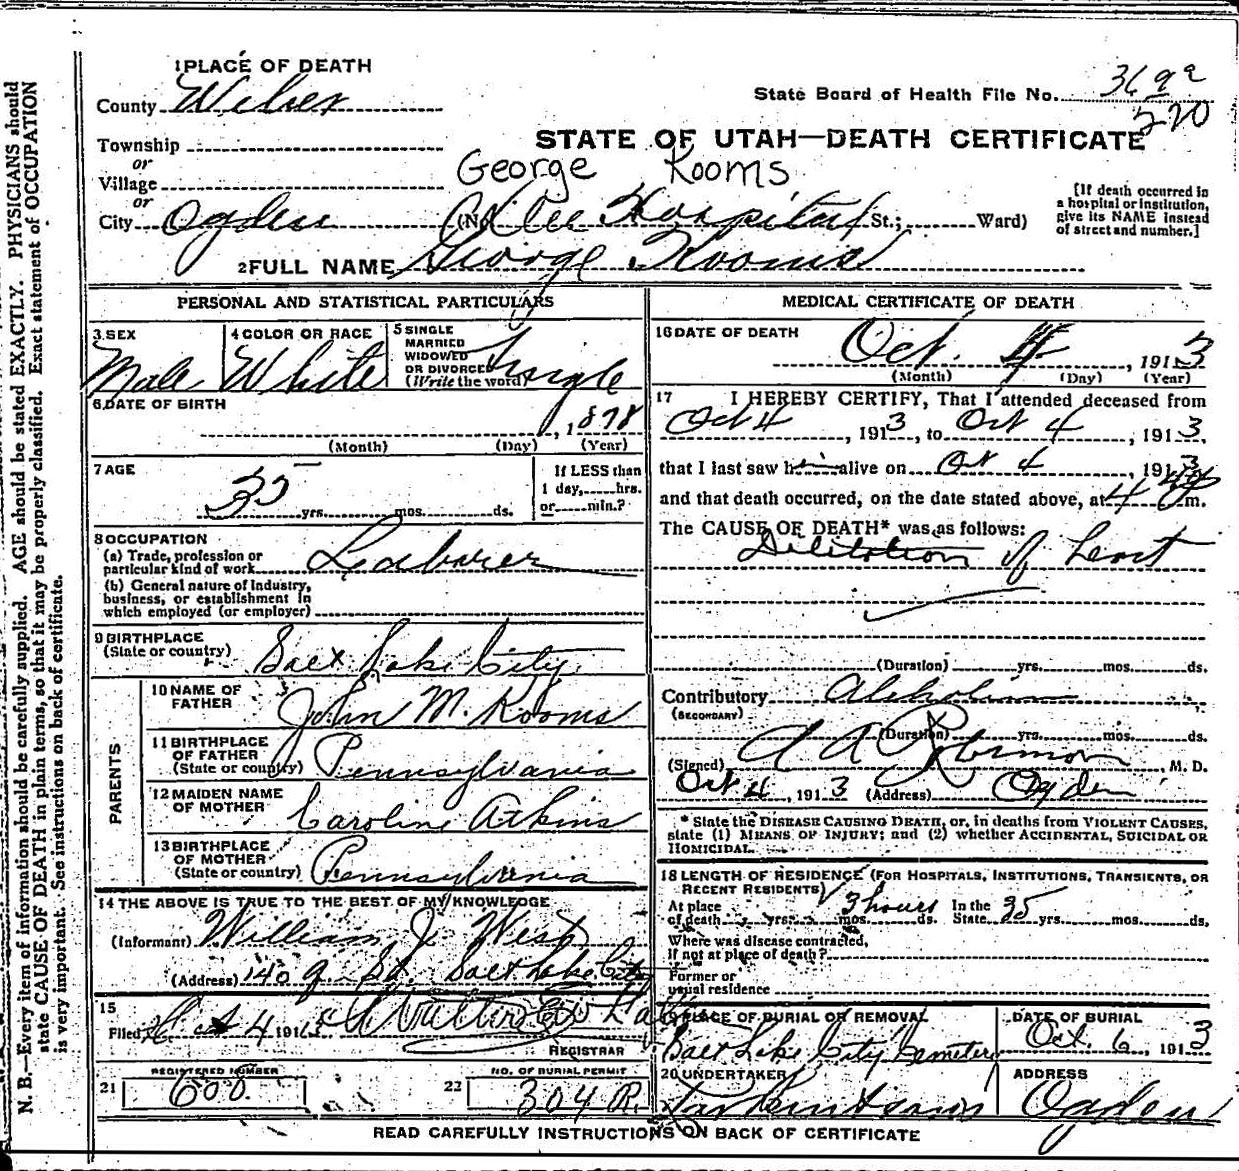 1 PLACE OF DEATH
County Weber
State Board of Health File No. 369a
270
Township
STATE OF UTAH—DEATH CERTIFICATE
or
Village
George Rooms
or
City Ogden (No. Dee Hospital St.; Ward)
[If death occurred in
a hospital or institution,
give its NAME instead
of street and number.]
2 FULL NAME George Rooms
PERSONAL AND STATISTICAL PARTICULARS
3 SEX
Male
4 COLOR OR RACE
White
5 SINGLE
MARRIED
WIDOWED
OR DIVORCED
(Write the word)
Single
6 DATE OF BIRTH
, 1878
(Month) (Day) (Year)
7 AGE
35 yrs. mos. ds.
If LESS than
1 day, hrs.
or min.?
8 OCCUPATION
(a) Trade, profession or
particular kind of work Laborer
(b) General nature of industry,
business, or establishment in
which employed (or employer)
9 BIRTHPLACE
(State or country)
Salt Lake City
PARENTS
10 NAME OF
FATHER
John M. Rooms
11 BIRTHPLACE
OF FATHER
(State or country)
Pennsylvania
12 MAIDEN NAME
OF MOTHER
Caroline Atkins
13 BIRTHPLACE
OF MOTHER
(State or country)
Pennsylvania
14 THE ABOVE IS TRUE TO THE BEST OF MY KNOWLEDGE
(Informant) William J West
(Address) 140 St. Salt Lake City
15
Filed Oct 4 191
REGISTRAR
21
REGISTERED NUMBER
600
22
NO. OF BURIAL PERMIT
304 R.
MEDICAL CERTIFICATE OF DEATH
16 DATE OF DEATH
Oct. 4, 1913
(Month) (Day) (Year)
17 I HEREBY CERTIFY, That I attended deceased from
Oct 4, 1913, to Oct 4, 1913,
that I last saw him alive on Oct 4, 1913
and that death occurred, on the date stated above, at 4 m.
The CAUSE OF DEATH* was as follows:
Dilitation of heart
(Duration) yrs. mos. ds.
Contributory Alcholism
(SECONDARY)
(Duration) yrs. mos. ds.
(Signed) A A Robinson, M. D.
Oct 4, 1913 (Address) Ogden
* State the DISEASE CAUSING DEATH, or, in deaths from VIOLENT CAUSES,
state (1) MEANS OF INJURY; and (2) whether ACCIDENTAL, SUICIDAL OR
HOMICIDAL.
18 LENGTH OF RESIDENCE (FOR HOSPITALS, INSTITUTIONS, TRANSIENTS, OR
RECENT RESIDENTS)
At place
of death yrs. mos. ds. 3 hours In the
State 35 yrs. mos. ds.
Where was disease contracted,
If not at place of death?
Former or
usual residence
19 PLACE OF BURIAL OR REMOVAL
Salt Lake City Cemetery
DATE OF BURIAL
Oct. 6, 1913
20 UNDERTAKER
ADDRESS
Ogden
READ CAREFULLY INSTRUCTIONS ON BACK OF CERTIFICATE
N. B.—Every item of information should be carefully supplied. AGE should be stated EXACTLY. PHYSICIANS should
state CAUSE OF DEATH in plain terms, so that it may be properly classified. Exact statement of OCCUPATION
is very important. See instructions on back of certificate.